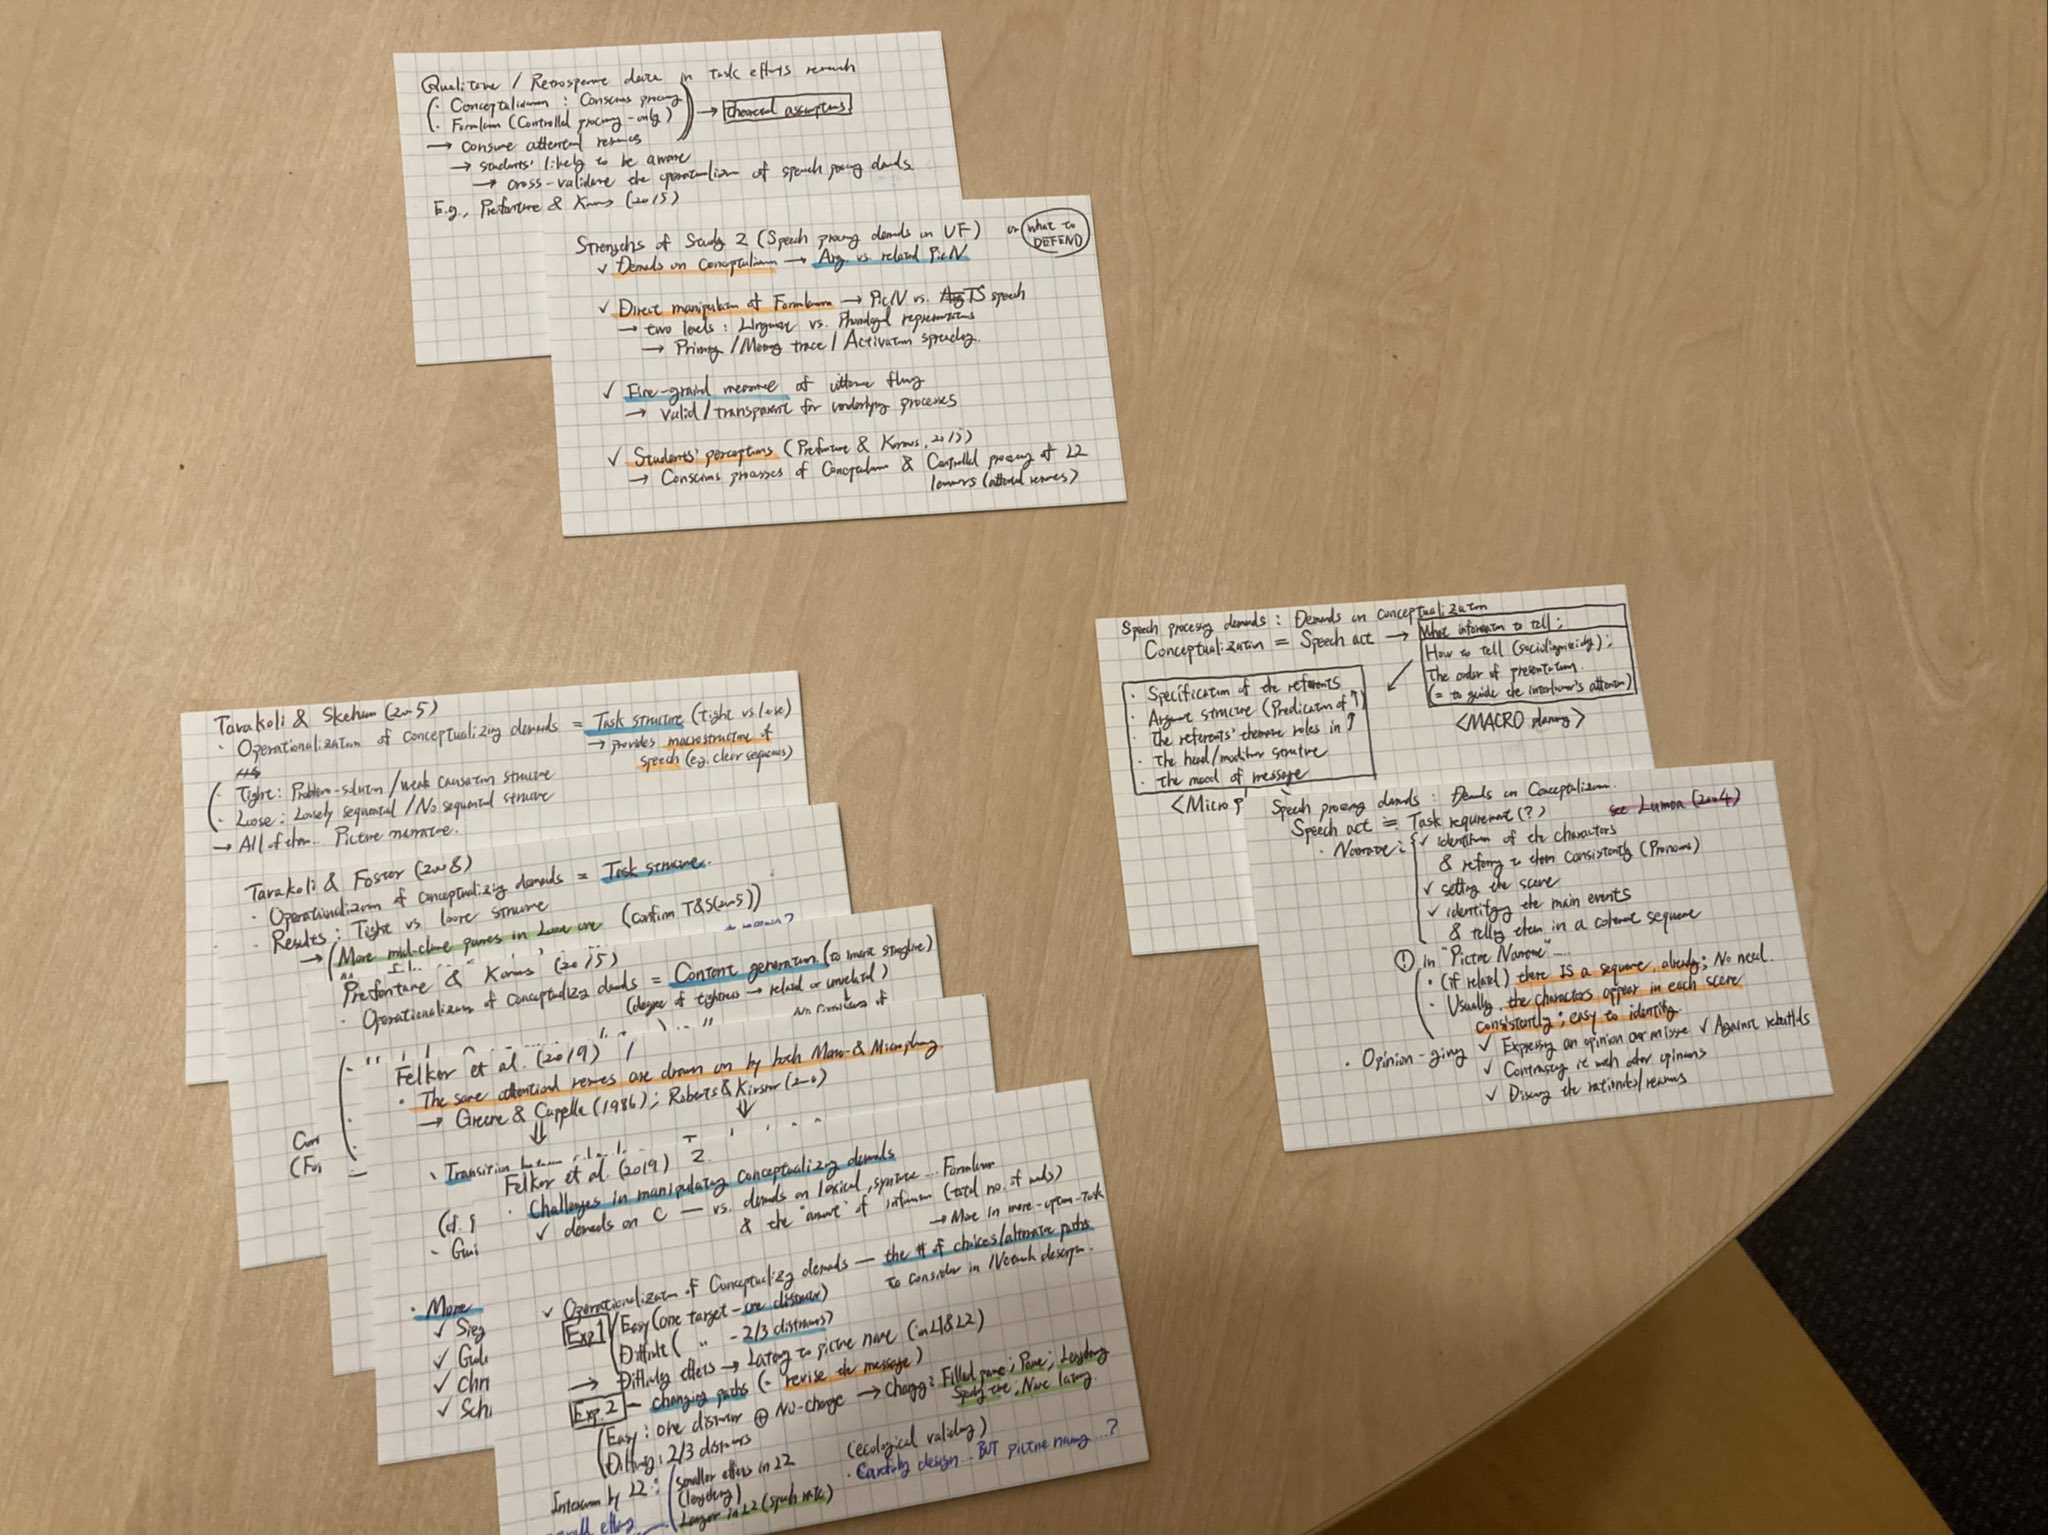 Qualitative / Retrospective data in task effects research
Conceptualization : Conscious processing
Formulation (Controlled processing-only)
→ theoretical assumptions
→ consume attentional resources
→ students' likely to be aware
→ cross-validate the operationalization of speech processing demands
E.g., Préfontaine & Kormos (2015)
Strengths of Study 2 (Speech processing demands on UF)
or what to DEFEND
✓ Demands on Conceptualization → Arg. vs. related PicN
✓ Direct manipulation of Formulation → PicN vs. TS speech
→ two levels : Linguistic vs. Phonological representations
→ Priming / Memory trace / Activation spreading.
✓ Fine-grained measure of utterance fluency
→ valid / transparent for underlying processes
✓ Students' perceptions (Préfontaine & Kormos, 2015)
→ Conscious processes of Conceptualization & Controlled processing of L2
learners (attentional resources)
Speech processing demands : Demands on Conceptualization
Conceptualization = Speech act →
What information to tell ;
How to tell (sociolinguistically) ;
The order of presentation.
(= to guide the interlocutor's attention)
<MACRO planning>
· Specification of the referents
· Argument structure (Predication of ↑)
· The referents' thematic roles in ↑
· The head/modifier structure
· The mood of message
<Micro p
Speech processing demands : Demands on Conceptualization.
Speech act ≒ Task requirement (?)
see Luoma (2004)
· Narrative : ✓ identification of the characters
& referring to them consistently (Pronouns)
✓ setting the scene
✓ identifying the main events
& telling them in a coherent sequence
! in "Picture Narrative" ....
· (if related) there IS a sequence, already ; No need.
· Usually, the characters appear in each scene
consistently ; easy to identify.
· Opinion-giving ✓ Expressing an opinion on an issue ✓ Against rebuttals
✓ Contrasting it with other opinions
✓ Discussing the rationales/reasons
Tavakoli & Skehan (2005)
· Operationalization of conceptualizing demands = Task structure (Tight vs loose)
→ provides macrostructure of
speech (e.g. clear sequences)
· Tight: Problem-solution / weak causation structure
· Loose : Loosely sequential / No sequential structure
→ All of them... Picture narrative.
Tavakoli & Foster (2008)
· Operationalization of conceptualizing demands = Task structure.
· Results : Tight vs loose structure
→ More mid-clause pauses in Loose one (confirm T&S(2005))
Préfontaine & Kormos (2015)
· Operationalization of conceptualizing demands = Content generation. (to invent storyline)
(degree of tightness → related or unrelated)
Felker et al. (2019) 1
· The same attentional resources are drawn on by both Macro- & Microplanning.
→ Greene & Cappella (1986) ; Roberts & Kirsner (2000)
· Transition between
Felker et al. (2019) 2.
· Challenges in manipulating conceptualizing demands
✓ demands on C — vs. demands on lexical, syntactic ... Formulation
& the "amount" of information (total no. of words)
→ More in more-option-task
✓ Operationalization of Conceptualizing demands — the # of choices/alternative paths
to consider in /Network description.
Exp 1 Easy (one target - one distractor)
Difficult ( " - 2/3 distractors)
→ Difficulty effects → Latency to picture name (in L1&L2)
Exp. 2 — changing paths (- revise the message)
Easy : one distractor ⊕ No-change → Change : Filled pause ; Pause ; Lengthening
Difficulty : 2/3 distractors
Interaction by L2 : smaller effects in L2
(lengthening)
Longer in L2 (speech rate)
(ecological validity)
· Carefully design... BUT picture naming ...?
(cf.
· More